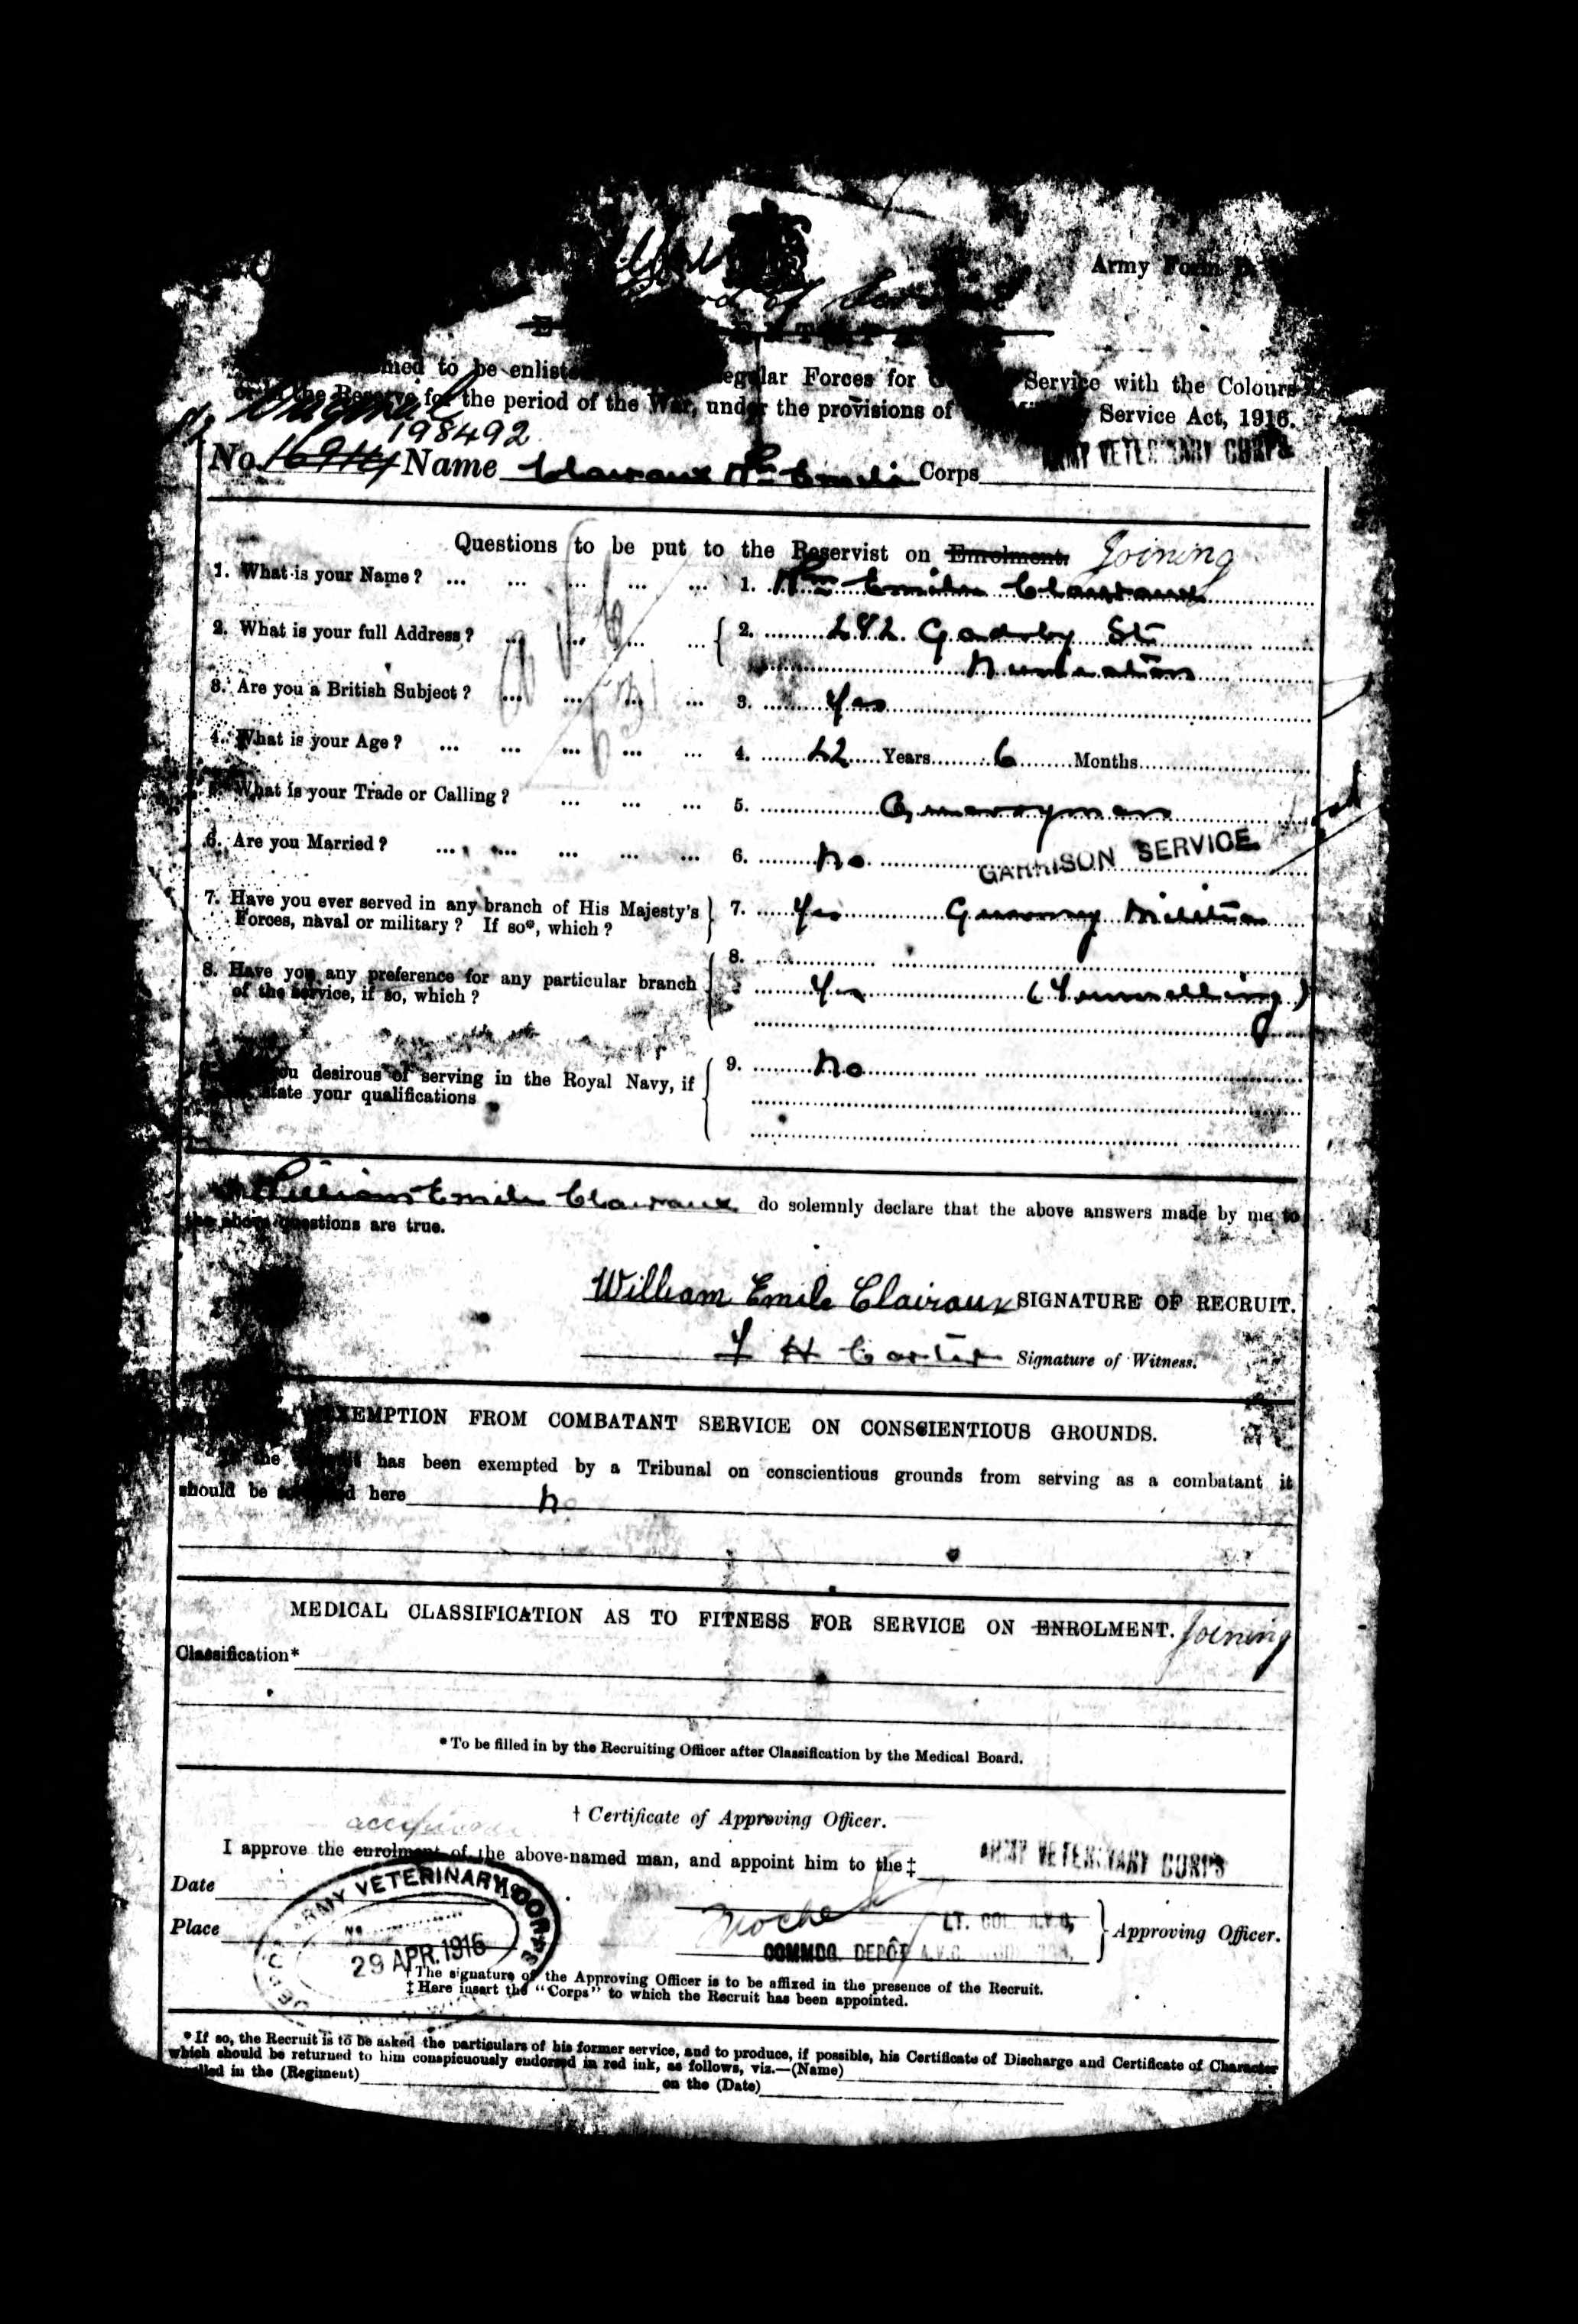 Army Form
of Service
med to be enlisted Regular Forces for Service with the Colours
or in the Reserve for the period of the War, under the provisions of Service Act, 1916.
Original
198492
No. 16914 Name Clairaux Wm Emile Corps ARMY VETERINARY CORPS
Questions to be put to the Reservist on Enrolment. Joining
1. What is your Name? ... ... ... ... ... 1. Wm Emile Clairaux
2. What is your full Address? ... ... ... ... 2. 282 Gadsby St
Nuneaton
3. Are you a British Subject? ... ... ... ... 3. Yes
4. What is your Age? ... ... ... ... ... 4. 22 Years 6 Months
What is your Trade or Calling? ... ... ... 5. Quarryman
6. Are you Married? ... ... ... ... ... 6. No
GARRISON SERVICE
7. Have you ever served in any branch of His Majesty's 7. Yes Guernsey Militia
Forces, naval or military? If so*, which?
8. Have you any preference for any particular branch 8. Yes (Tunnelling)
of the service, if so, which?
you desirous of serving in the Royal Navy, if 9. No
state your qualifications
William Emile Clairaux do solemnly declare that the above answers made by me to
the above questions are true.
William Emile Clairaux SIGNATURE OF RECRUIT.
H Carter Signature of Witness.
EXEMPTION FROM COMBATANT SERVICE ON CONSCIENTIOUS GROUNDS.
the has been exempted by a Tribunal on conscientious grounds from serving as a combatant it
should be here No
MEDICAL CLASSIFICATION AS TO FITNESS FOR SERVICE ON ENROLMENT. Joining
Classification*
*To be filled in by the Recruiting Officer after Classification by the Medical Board.
† Certificate of Approving Officer.
I approve the enrolment of the above-named man, and appoint him to the‡ ARMY VETERINARY CORPS
Date
ARMY VETERINARY CORPS
No
29 APR. 1916
Place
LT. COL. A.V.C.
COMMDG. DEPÔT A.V.C.
Approving Officer.
†The signature of the Approving Officer is to be affixed in the presence of the Recruit.
‡Here insert the "Corps" to which the Recruit has been appointed.
*If so, the Recruit is to be asked the particulars of his former service, and to produce, if possible, his Certificate of Discharge and Certificate of Character
which should be returned to him conspicuously endorsed in red ink, as follows, viz.—(Name)
in the (Regiment) on the (Date)